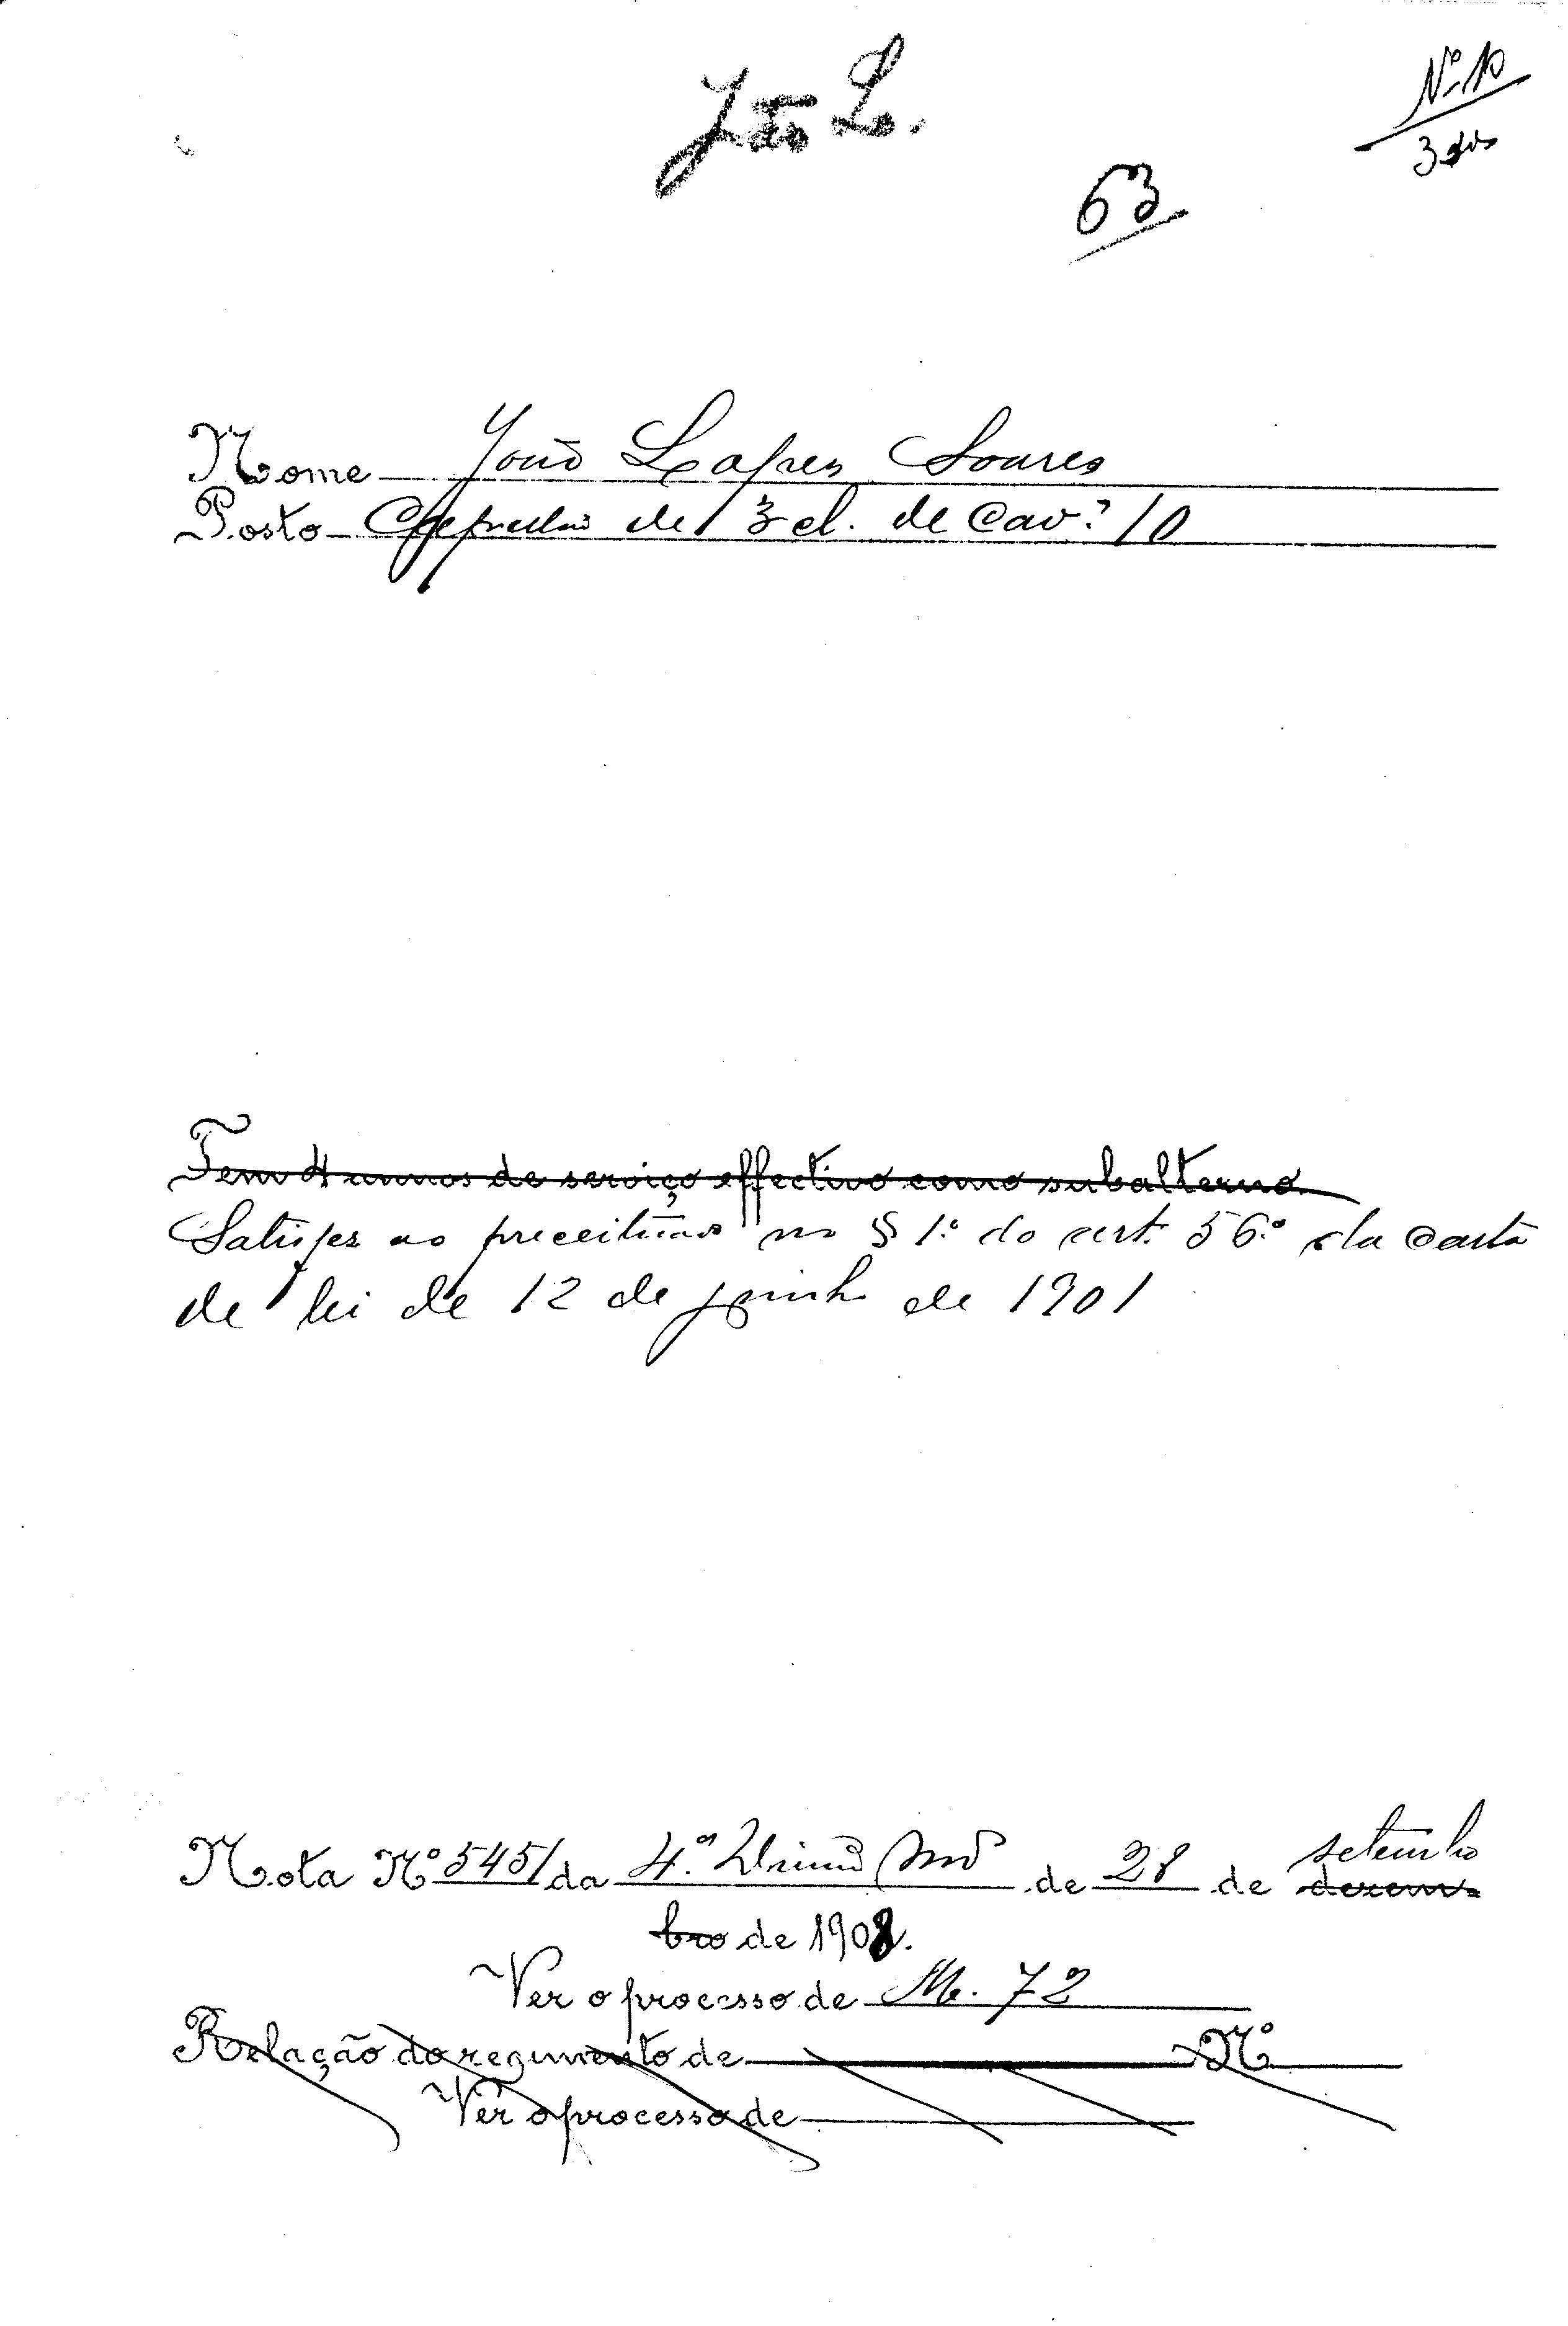 João L.
Nº 10
3
63
Nome João Lopes Soares
Posto Capellão de 3 cl. de Cav.ª 10
Tem 4 annos de serviço effectivo como subalterno.
Satisfez ao preceituado no § 1.º do art. 56.º da carta
de lei de 12 de junho de 1901
Nota Nº 545/ da 4.ª de 28 de dezem- setembro
bro de 1908.
Ver o processo de M. 72
Relação do regimento de Nº
Ver o processo de